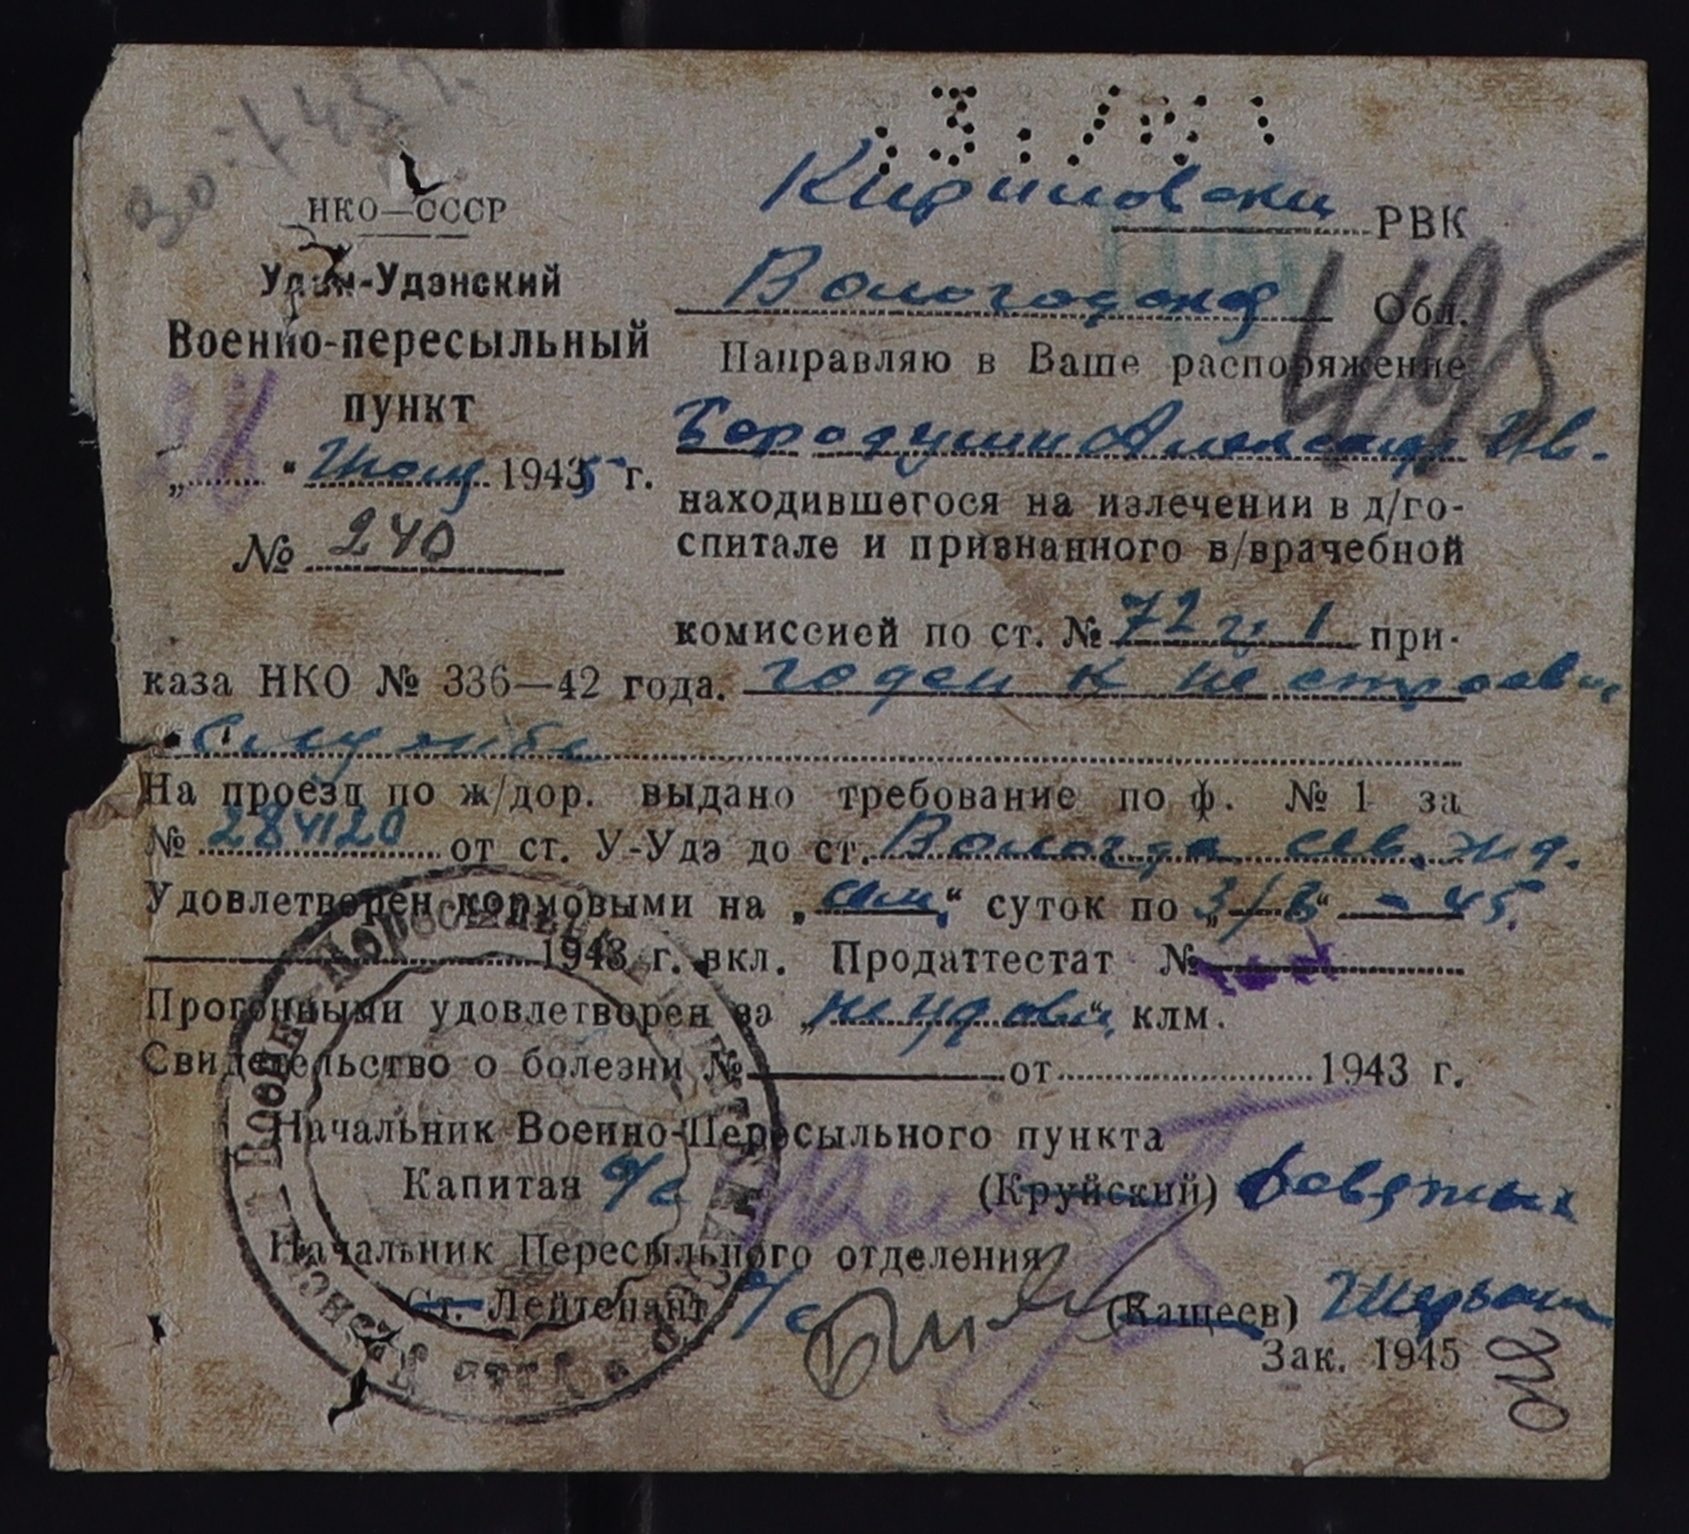 НКО—СССР
Улан-Удэнский
Военно-пересыльный
пункт
"18" Июля 1945 г.
№ 240
Кирилловский РВК
Вологодской Обл.
495
Направляю в Ваше распоряжение
Бородулин Александр Ив.
находившегося на излечении в д/го-
спитале и признанного в/врачебной
комиссией по ст. № 72 гр. 1 при-
каза НКО № 336—42 года. годен к не строевой
службе
На проезд по ж/дор. выдано требование по ф. № 1 за
№ 284120 от ст. У-Удэ до ст. Вологда сев. ж д.
Удовлетворен кормовыми на " " суток по "3/8" - 45.
1943 г. вкл. Продаттестат №
Прогонными удовлетворен за "не удовл" клм.
Свидетельство о болезни № от 1943 г.
Начальник Военно-Пересыльного пункта
Капитан а/с (Круйский)
Начальник Пересыльного отделения
Ст. Лейтенант а/с (Кащеев)
Зак. 1945